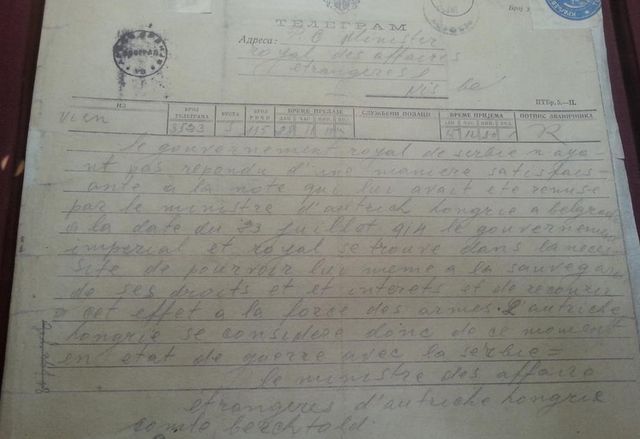 Број 3
ТЕЛЕГРАМ
Адреса: Minister
royal des affaires
etrangeres
Nis
ПТБр. 5.—II.
ИЗ
БРОЈ ТЕЛЕГРАМА
ВРСТА
БРОЈ РЕЧИ
ВРЕМЕ ПРЕДАЈЕ
СЛУЖБЕНИ ПОДАЦИ
ВРЕМЕ ПРИЈЕМА
ПОТПИС ЗВАНИЧНИКА
ДАН ЧАС
ДАН ЧАС
Vien
115
le gouvernement royal de serbie n ayo
nt pas repondu d'une maniere satisfais-
ante a la note qui lui avait ete remise
par le ministre d'autrich hongrie a belgrad
a la date du 23 juillot 914 le gouverneme
imperial et royal se trouve dans lanece
site de pourvoir lui meme a la sauvegar
de ses droits et et interets et de recourir
a cet effet a la force des armes. L'autriche
hongrie se considere donc de ce moment
en etat de guerre avec la serbie =
le ministre des affaire
etrangeres d'autriche hongrie
comte berchtold